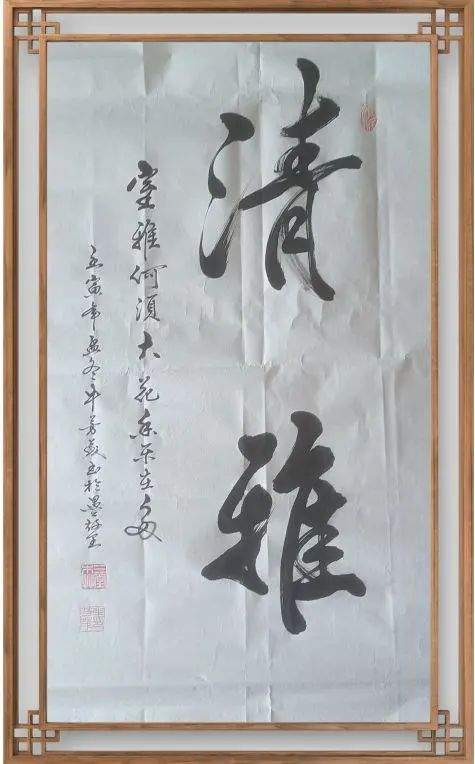 清雅
室雅何须大花香不在多
壬寅年孟冬
书於